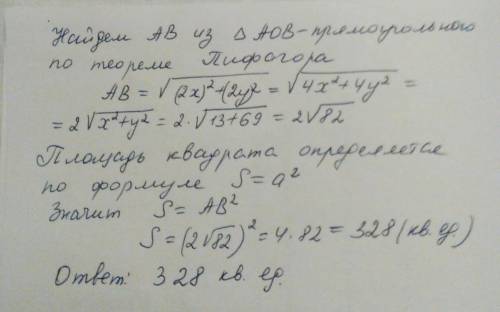 Найдем AB из △ AOB-прямоугольного
по теореме Пифагора
AB = √(2x)²+(2y)² = √4x²+4y² =
= 2√x²+y² = 2·√13+69 = 2√82
Площадь квадрата определяется
по формуле S=a²
Значит S= AB²
S=(2√82)²=4·82=328(кв.ед.)
Ответ: 328 кв. ед.